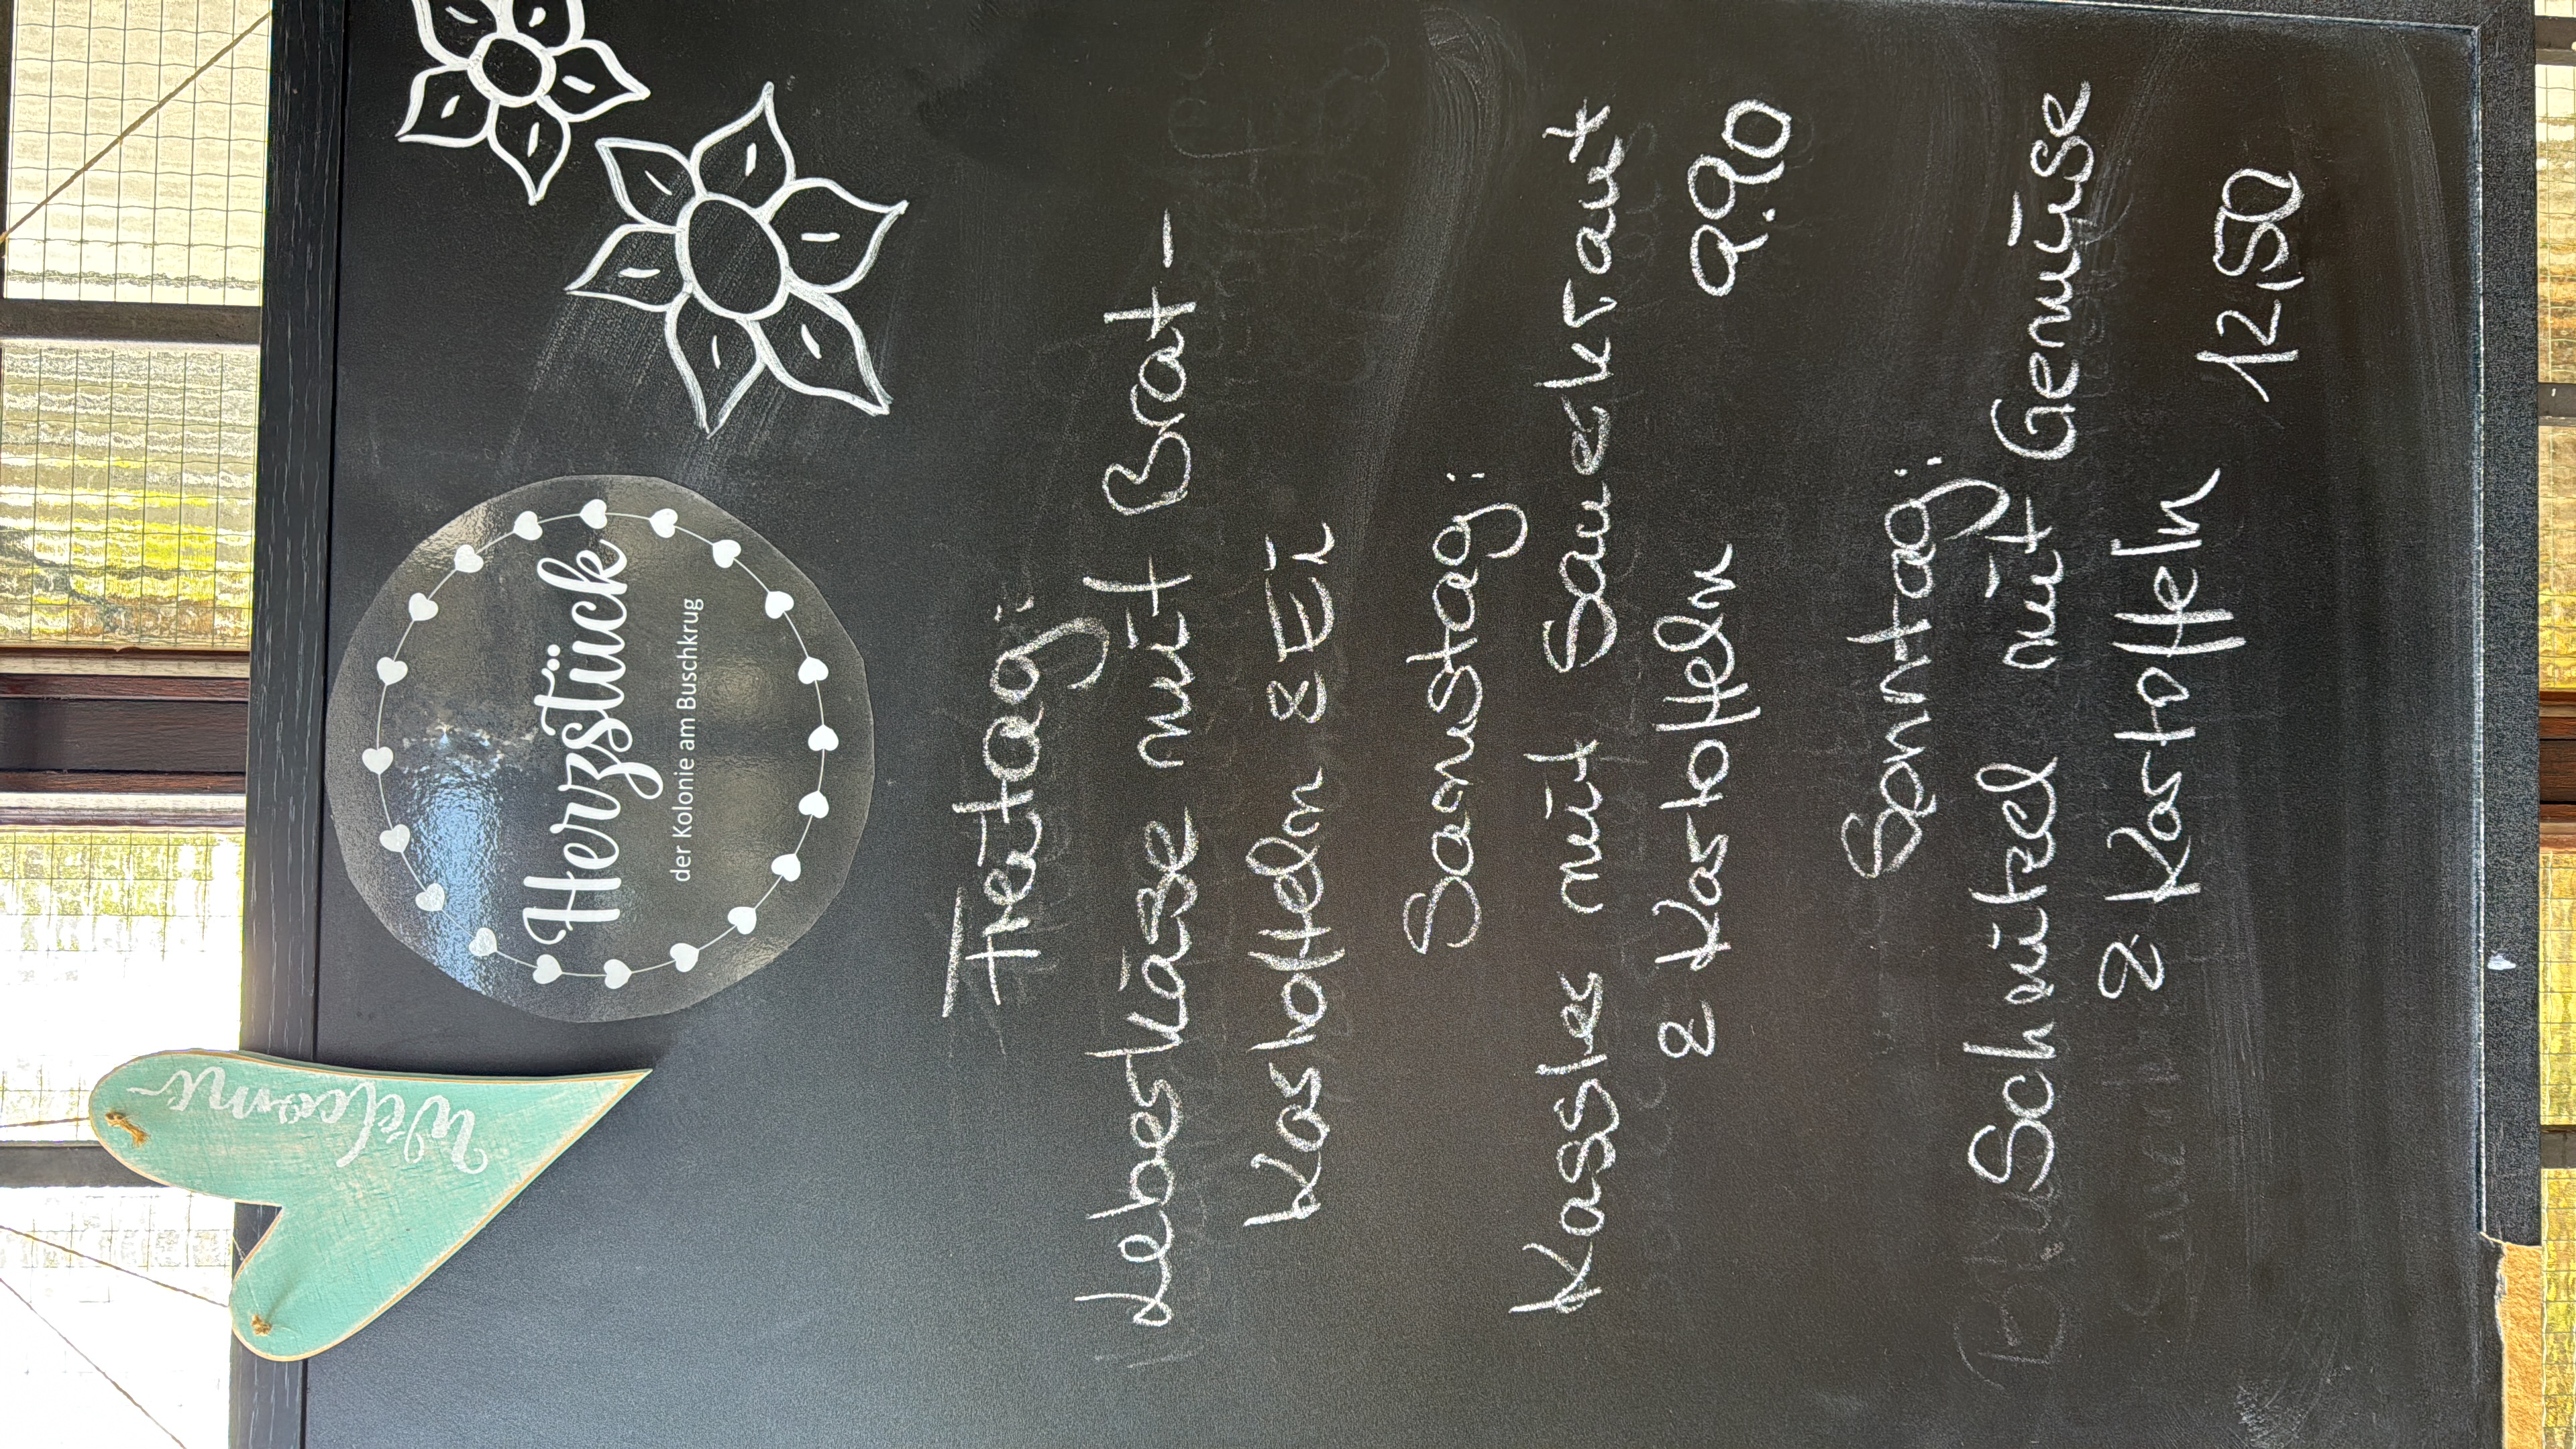 Welcome
Herzstück
der Kolonie am Buschkrug
Freitag:
Leberkäse mit Brat-
kartoffeln & Ei
Samstag:
Kassler mit Sauerkraut
& Kartoffeln 9.90
Sonntag:
Schnitzel mit Gemüse
& Kartoffeln 12,50